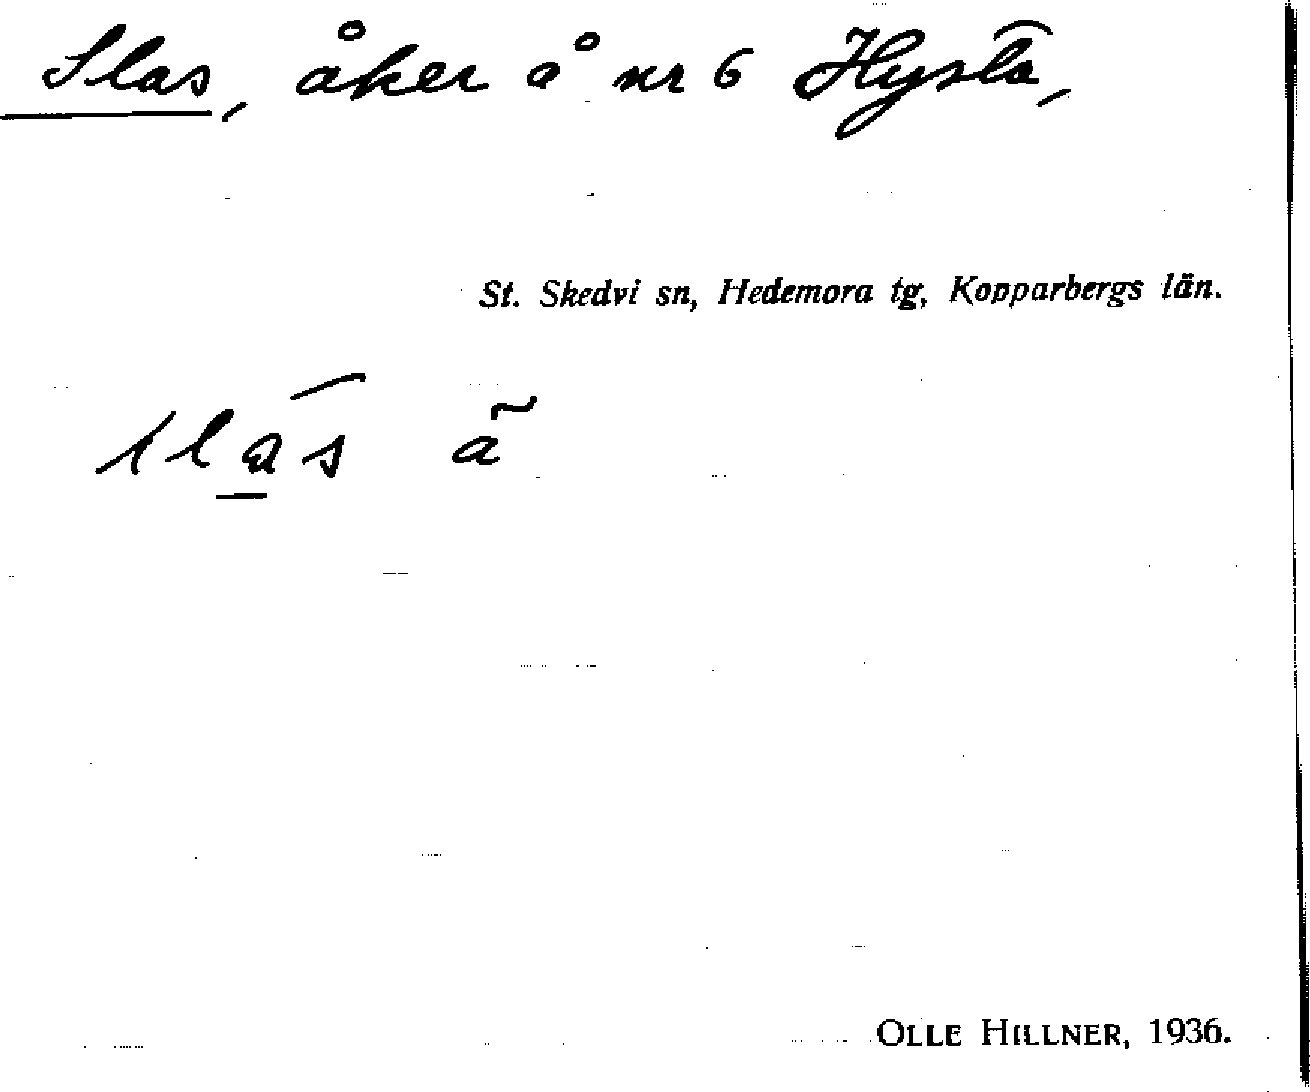 Slas, åker å nr 6 Hysta,
St. Skedvi sn, Hedemora tg, Kopparbergs län.
sla̲s ã
OLLE HILLNER, 1936.